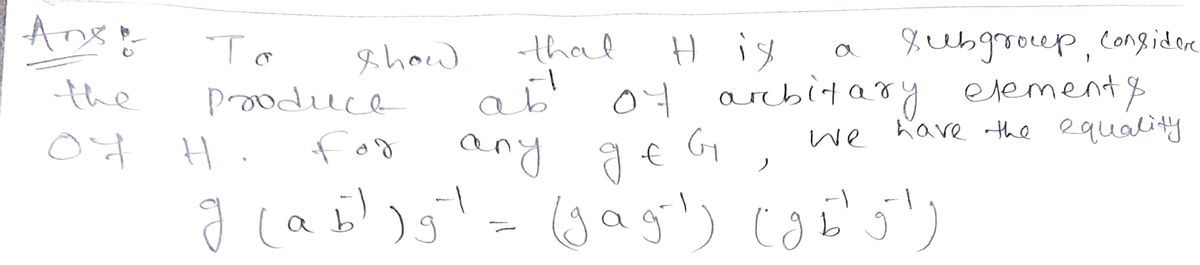 Ans:- To show that H is a subgroup, consider
the produce ab⁻¹ of arbitary elements
of H. for any g ∈ G, we have the equality
g (a b⁻¹) g⁻¹ = (g a g⁻¹) (g b⁻¹ g⁻¹)